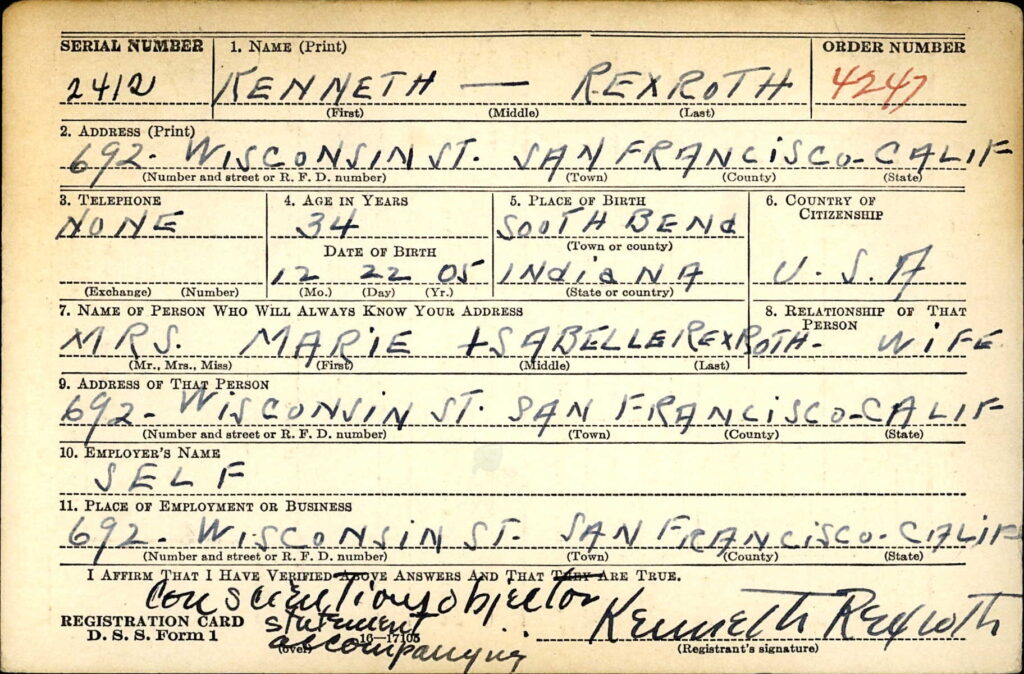 SERIAL NUMBER 1. NAME (Print) ORDER NUMBER
2412 KENNETH — REXROTH 4247
(First) (Middle) (Last)
2. ADDRESS (Print)
692- WISCONSIN ST. SAN FRANCISCO-CALIF
(Number and street or R. F. D. number) (Town) (County) (State)
3. TELEPHONE 4. AGE IN YEARS 5. PLACE OF BIRTH 6. COUNTRY OF CITIZENSHIP
NONE 34 SOOTH BEND
DATE OF BIRTH (Town or county)
12 22 05 INDIANA U. S. A
(Exchange) (Number) (Mo.) (Day) (Yr.) (State or country)
7. NAME OF PERSON WHO WILL ALWAYS KNOW YOUR ADDRESS 8. RELATIONSHIP OF THAT PERSON
MRS. MARIE ISABELLE REXROTH- WIFE
(Mr., Mrs., Miss) (First) (Middle) (Last)
9. ADDRESS OF THAT PERSON
692- WISCONSIN ST. SAN FRANCISCO-CALIF
(Number and street or R. F. D. number) (Town) (County) (State)
10. EMPLOYER'S NAME
SELF
11. PLACE OF EMPLOYMENT OR BUSINESS
692- WISCONSIN ST. SAN FRANCISCO-CALIF
(Number and street or R. F. D. number) (Town) (County) (State)
I AFFIRM THAT I HAVE VERIFIED ABOVE ANSWERS AND THAT THEY ARE TRUE.
conscientious objector
statement
accompanying
REGISTRATION CARD
D. S. S. Form 1 (over) 16—17105
Kenneth Rexroth
(Registrant's signature)